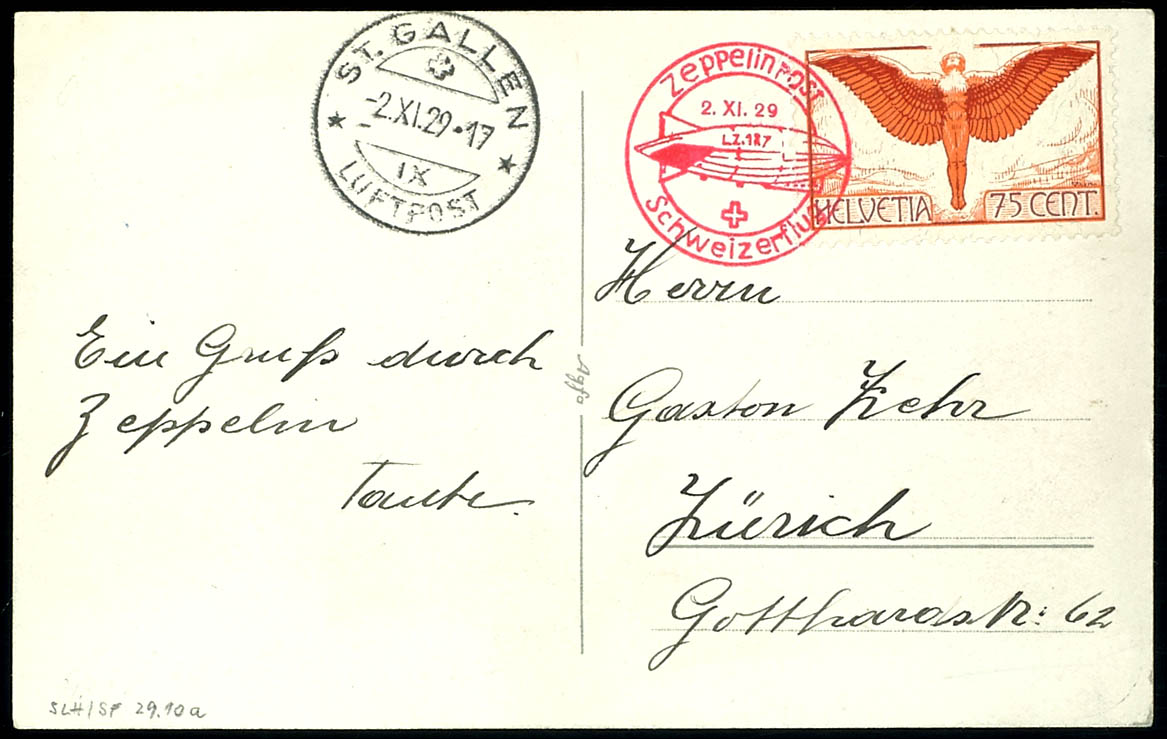 ST. GALLEN
-2.XI.29-17
IX
LUFTPOST
Zeppelinpost
2. XI. 29
L.Z.127
Schweizerflug
HELVETIA 75 CENT.
Herrn
Gaston Zehr
Zürich
Gotthardstr: 62
Ein Gruß durch
Zeppelin
Tante.
Agfa
SLH/SF 29.10a